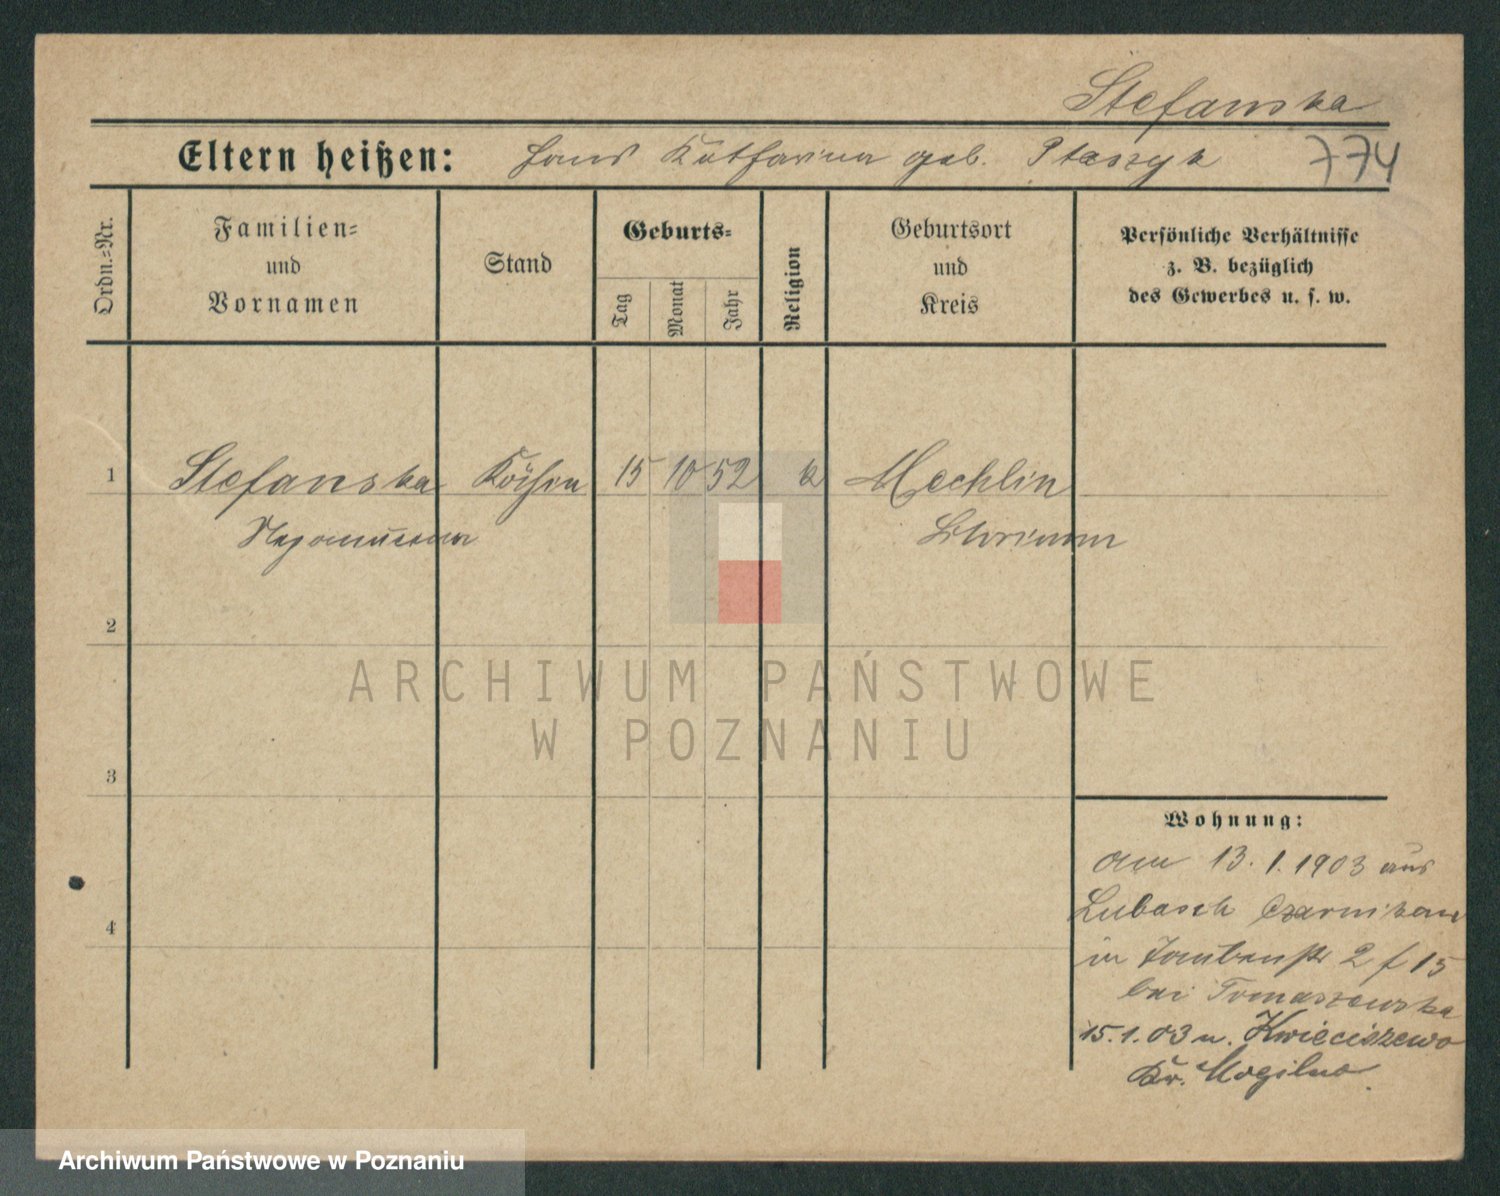 Stefanska
Eltern heißen: Hans Katharina geb. Ptaszyk 774
Ordn.-Nr.
Familien=
und
Vornamen
Stand
Geburts=
Tag
Monat
Jahr
Religion
Geburtsort
und
Kreis
Persönliche Verhältnisse
z. B. bezüglich
des Gewerbes u. s. w.
1 Stefanska Köchin 15 10 52 k Mechlin
Nepomucena Schrimm
2
3
4
ARCHIWUM PAŃSTWOWE
W POZNANIU
Wohnung:
am 13. 1. 1903 aus
Lubasch Czarnikau
in Taubenstr 2 f 15
bei Tomaszewska
15. 1. 03 n. Kwieciszewo
Kr. Mogilno.
Archiwum Państwowe w Poznaniu